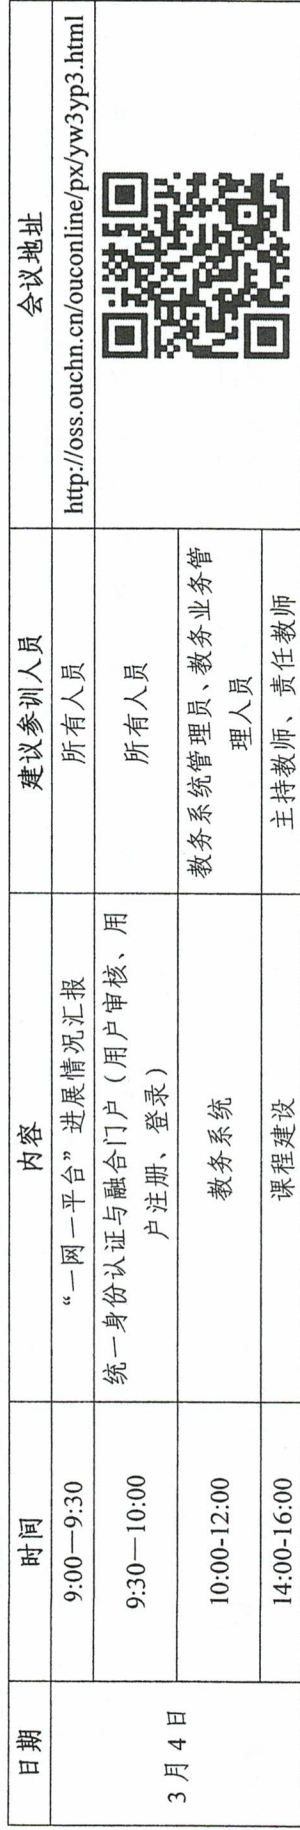 日期 时间 内容 建议参训人员 会议地址
3月4日
9:00—9:30 “一网一平台”进展情况汇报 所有人员 http://oss.ouchn.cn/ouconline/px/yw3yp3.html
9:30—10:00 统一身份认证与融合门户（用户审核、用
户注册、登录） 所有人员
10:00-12:00 教务系统 教务系统管理员、教务业务管
理人员
14:00-16:00 课程建设 主持教师、责任教师